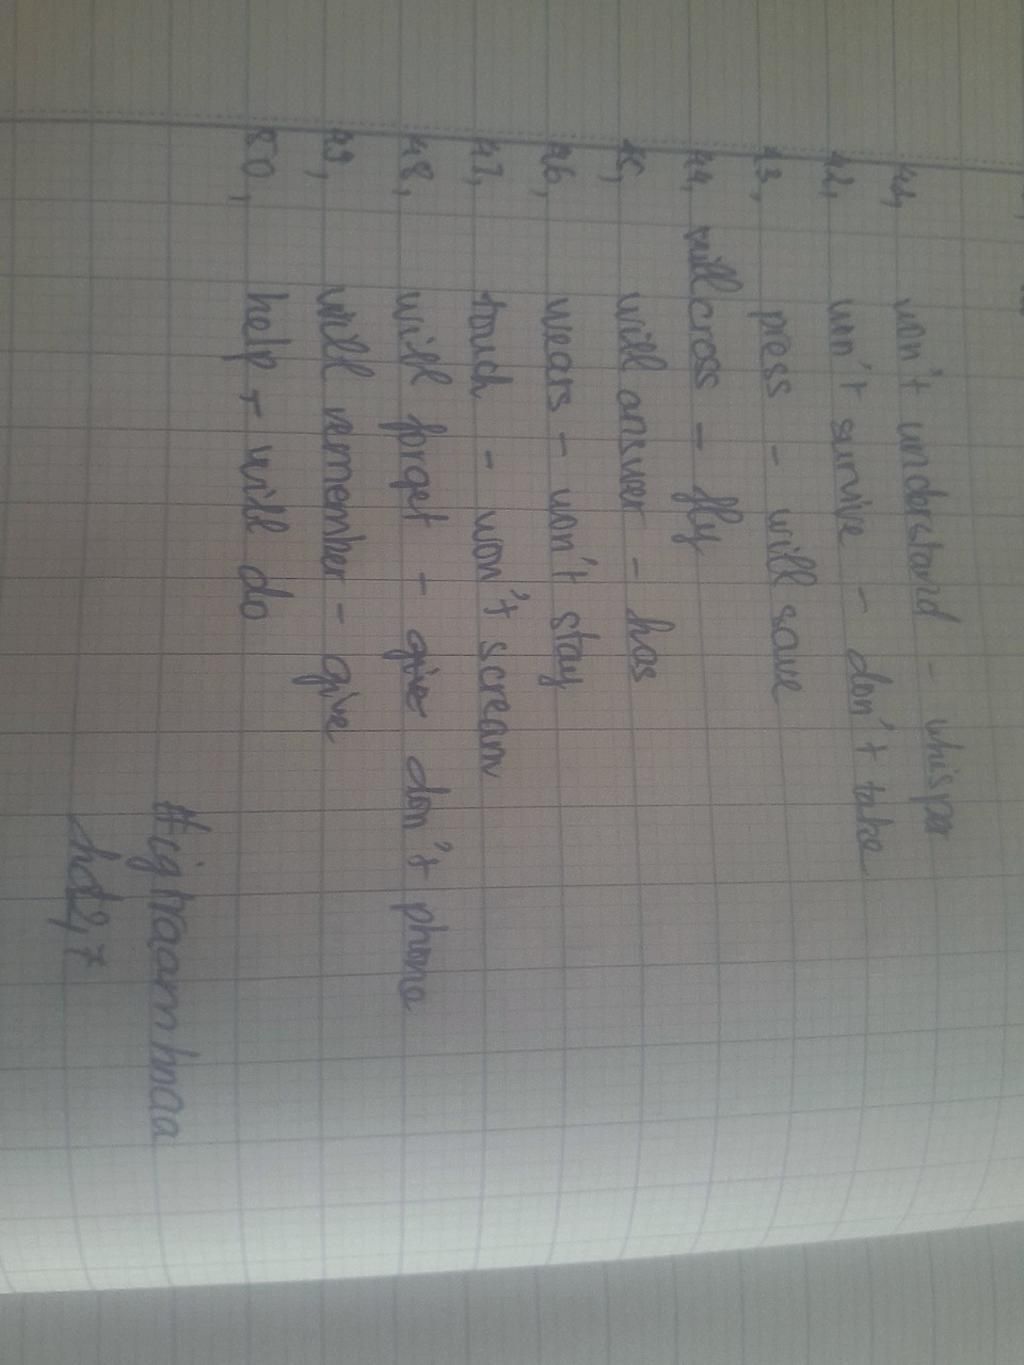 41, won't understand - whisper
42, won't survive - don't take
43, press - will save
44, will cross - fly
45, will answer - has
46, wears - won't stay
47, touch - won't scream
48, will forget - give don't phone
49, will remember - give
50, help - will do